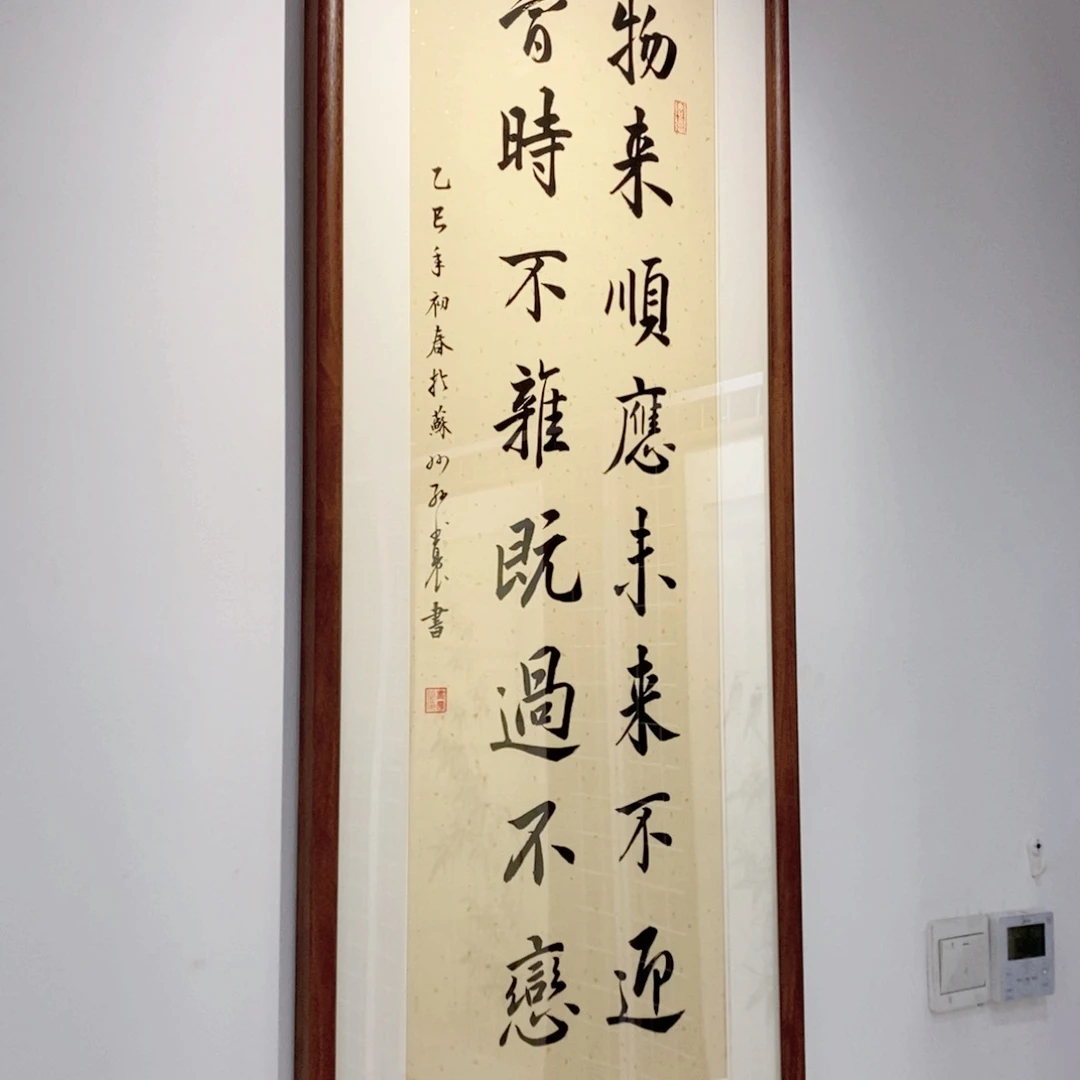 物来順應未来不迎
當時不雜既過不戀
乙巳年初春於蘇州
書